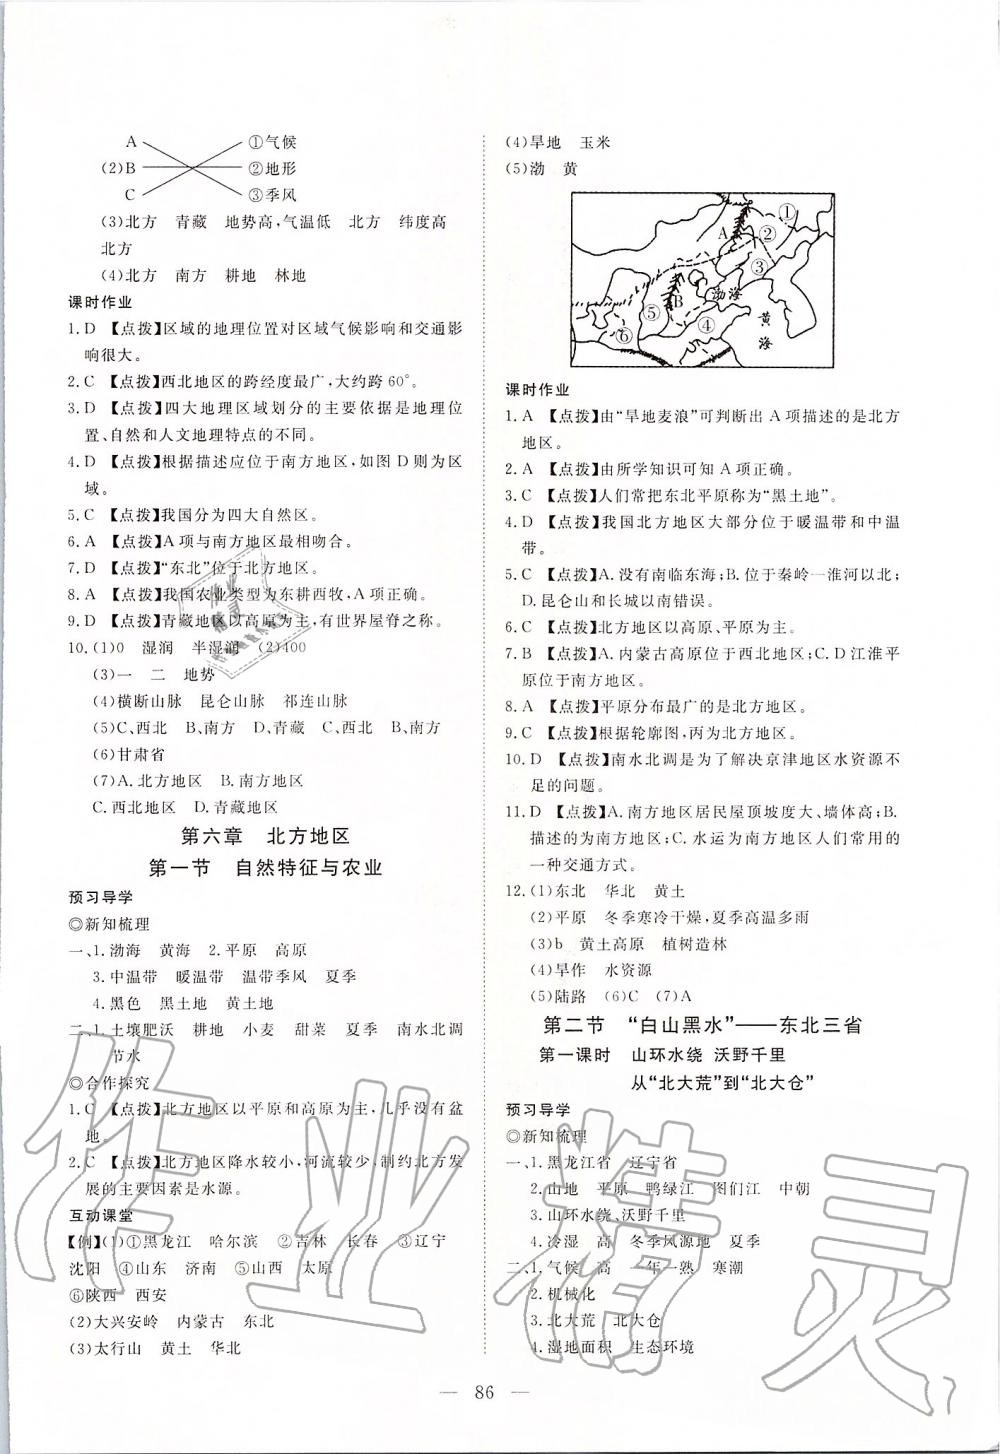 A ①气候
(2)B ②地形
C ③季风
(3)北方 青藏 地势高,气温低 北方 纬度高
北方
(4)北方 南方 耕地 林地
课时作业
1. D 【点拨】区域的地理位置对区域气候影响和交通影
响很大。
2. C 【点拨】西北地区的跨经度最广,大约跨 60°。
3. D 【点拨】四大地理区域划分的主要依据是地理位
置、自然和人文地理特点的不同。
4. D 【点拨】根据描述应位于南方地区,如图 D则为区
域。
5. C 【点拨】我国分为四大自然区。
6. A 【点拨】A 项与南方地区最相吻合。
7. D 【点拨】“东北”位于北方地区。
8. A 【点拨】我国农业类型为东耕西牧,A 项正确。
9. D 【点拨】青藏地区以高原为主,有世界屋脊之称。
10. (1)0 湿润 半湿润 (2)400
(3)一 二 地势
(4)横断山脉 昆仑山脉 祁连山脉
(5)C、西北 B、南方 D、青藏 A、北方
(6)甘肃省
(7)A. 北方地区 B. 南方地区
C. 西北地区 D. 青藏地区
第六章 北方地区
第一节 自然特征与农业
预习导学
◎新知梳理
一、1. 渤海 黄海 2. 平原 高原
3. 中温带 暖温带 温带季风 夏季
4. 黑色 黑土地 黄土地
二、1. 土壤肥沃 耕地 小麦 甜菜 夏季 南水北调
节水
◎合作探究
1. C 【点拨】北方地区以平原和高原为主,几乎没有盆
地。
2. C 【点拨】北方地区降水较小,河流较少,制约北方发
展的主要因素是水源。
互动课堂
【例】(1)①黑龙江 哈尔滨 ②吉林 长春 ③辽宁
沈阳 ④山东 济南 ⑤山西 太原
⑥陕西 西安
(2)大兴安岭 内蒙古 东北
(3)太行山 黄土 华北
(4)旱地 玉米
(5)渤 黄
①
A ②
③
渤海
B
⑤ ④ 黄
⑥ 海
课时作业
1. A 【点拨】由“旱地麦浪”可判断出 A 项描述的是北方
地区。
2. A 【点拨】由所学知识可知 A 项正确。
3. C 【点拨】人们常把东北平原称为“黑土地”。
4. D 【点拨】我国北方地区大部分位于暖温带和中温
带。
5. C 【点拨】A. 没有南临东海;B. 位于秦岭一淮河以北;
D. 昆仑山和长城以南错误。
6. C 【点拨】北方地区以高原、平原为主。
7. B 【点拨】A. 内蒙古高原位于西北地区;C. D 江淮平
原位于南方地区。
8. A 【点拨】平原分布最广的是北方地区。
9. C 【点拨】根据轮廓图,丙为北方地区。
10. D 【点拨】南水北调是为了解决京津地区水资源不
足的问题。
11. D 【点拨】A. 南方地区居民屋顶坡度大、墙体高;B.
描述的为南方地区;C. 水运为南方地区人们常用的
一种交通方式。
12. (1)东北 华北 黄土
(2)平原 冬季寒冷干燥,夏季高温多雨
(3)b 黄土高原 植树造林
(4)旱作 水资源
(5)陆路 (6)C (7)A
第二节 “白山黑水”——东北三省
第一课时 山环水绕 沃野千里
从“北大荒”到“北大仓”
预习导学
◎新知梳理
一、1. 黑龙江省 辽宁省
2. 山地 平原 鸭绿江 图们江 中朝
3. 山环水绕、沃野千里
4. 冷湿 高 冬季风源地 夏季
二、1. 气候 高 一年一熟 寒潮
2. 机械化
3. 北大荒 北大仓
4. 湿地面积 生态环境
— 86 —
作业精灵